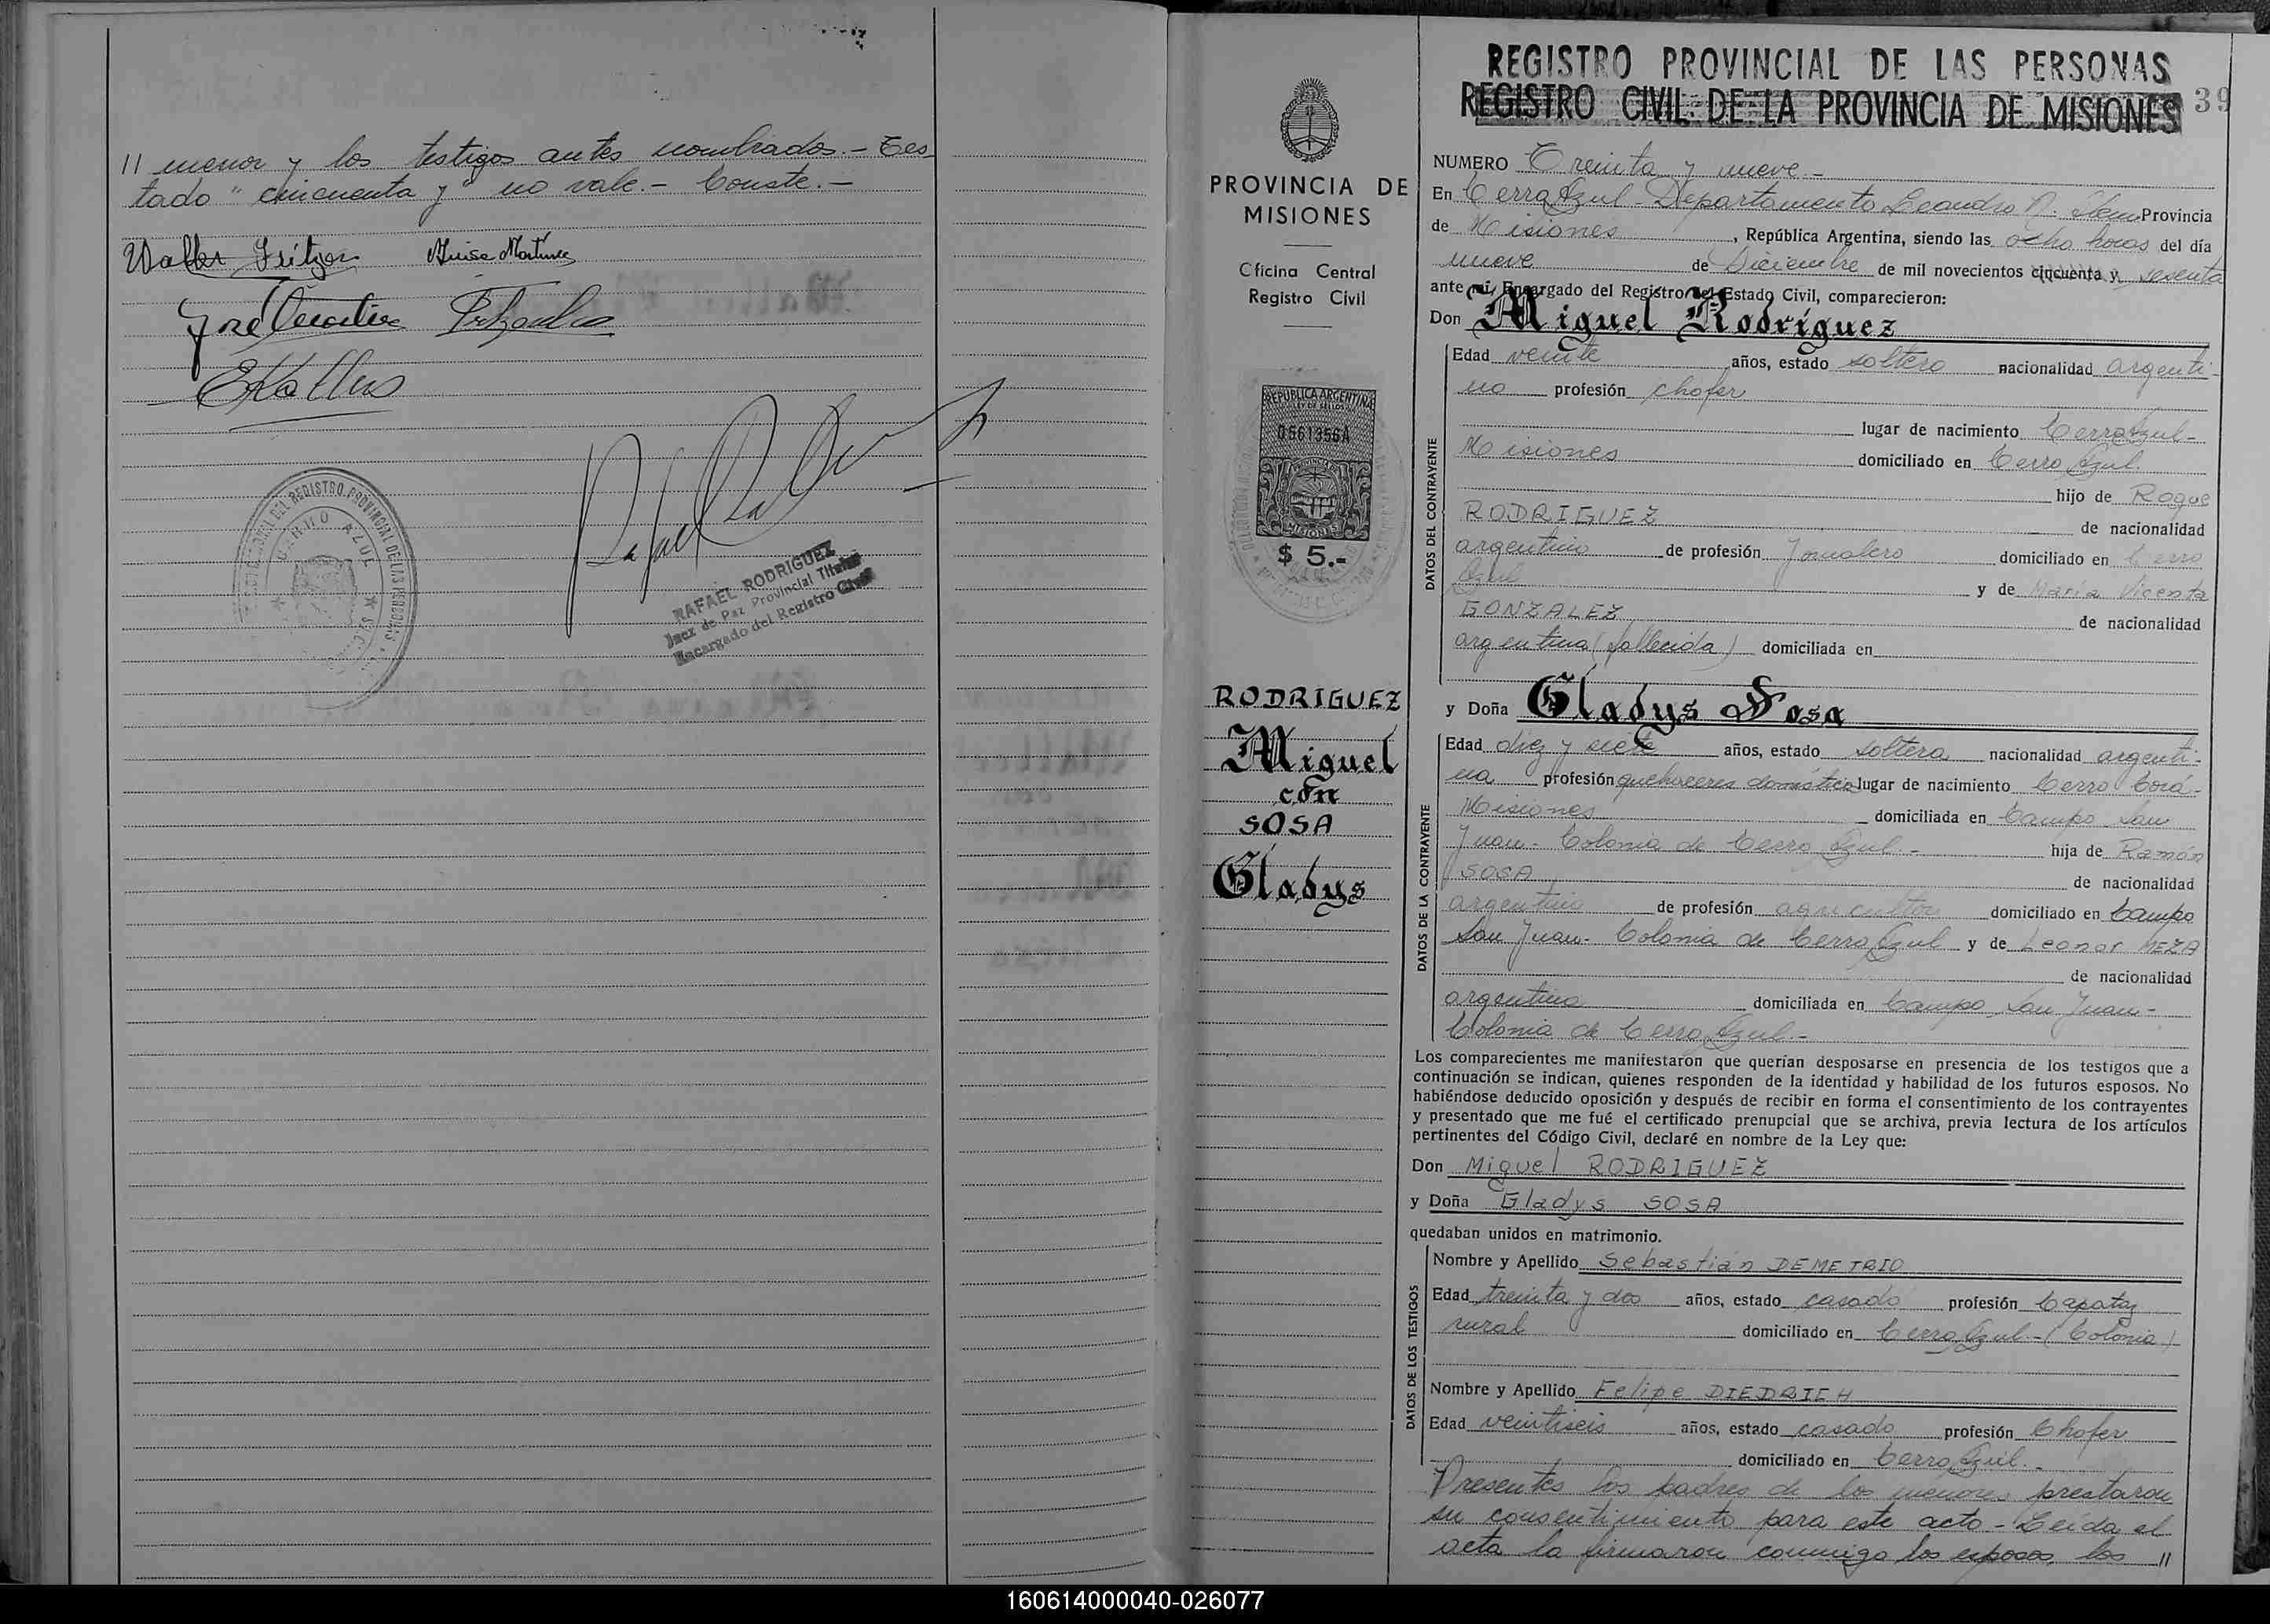 // menor y los testigos antes nombrados.- Tes
tado "cincuenta y" no vale.- Conste.-
Walter Fritzen
RAFAEL RODRIGUEZ
Juez de Paz Provincial Titular
Encargado del Registro Civil
CERRO AZUL
PROVINCIA DE
MISIONES
Oficina Central
Registro Civil
REPUBLICA ARGENTINA
LEY DE SELLOS
0561356A
MISIONES
$ 5.-
RODRIGUEZ
Miguel
con
SOSA
Gladys
REGISTRO PROVINCIAL DE LAS PERSONAS
REGISTRO CIVIL DE LA PROVINCIA DE MISIONES
39
NUMERO Treinta y nueve.-
En Cerro Azul - Departamento Leandro N. Alem Provincia
de Misiones, República Argentina, siendo las ocho horas del día
nueve de Diciembre de mil novecientos cincuenta y sesenta
ante mi, Encargado del Registro del Estado Civil, comparecieron:
Don Miguel Rodríguez
DATOS DEL CONTRAYENTE
Edad veinte años, estado soltero nacionalidad argenti-
no profesión chofer
lugar de nacimiento Cerro Azul-
Misiones domiciliado en Cerro Azul.
hijo de Roque
RODRIGUEZ de nacionalidad
argentino de profesión Jornalero domiciliado en Cerro
Azul y de María Vicenta
GONZALEZ de nacionalidad
argentina (fallecida) domiciliada en
y Doña Gladys Sosa
DATOS DE LA CONTRAYENTE
Edad diez y siete años, estado soltera nacionalidad argenti-
na profesión quehaceres domésticos lugar de nacimiento Cerro Corá-
Misiones domiciliada en Campo San
Juan- Colonia de Cerro Azul - hija de Ramón
SOSA de nacionalidad
argentino de profesión agricultor domiciliado en Campo
San Juan- Colonia de Cerro Azul y de Leonor MEZA
de nacionalidad
argentina domiciliada en Campo San Juan-
Colonia de Cerro Azul.-
Los comparecientes me manifestaron que querían desposarse en presencia de los testigos que a
continuación se indican, quienes responden de la identidad y habilidad de los futuros esposos. No
habiéndose deducido oposición y después de recibir en forma el consentimiento de los contrayentes
y presentado que me fué el certificado prenupcial que se archiva, previa lectura de los artículos
pertinentes del Código Civil, declaré en nombre de la Ley que:
Don Miguel RODRIGUEZ
y Doña Gladys SOSA
quedaban unidos en matrimonio.
DATOS DE LOS TESTIGOS
Nombre y Apellido Sebastián DEMETRIO
Edad treinta y dos años, estado casado profesión Capataz
rural domiciliado en Cerro Azul - (Colonia)
Nombre y Apellido Felipe DIEDRICH
Edad veintiseis años, estado casado profesión Chofer
domiciliado en Cerro Azul.-
Presentes los padres de los menores prestaron
su consentimiento para este acto - Leída el
acta la firmaron conmigo los esposos, los //
160614000040-026077